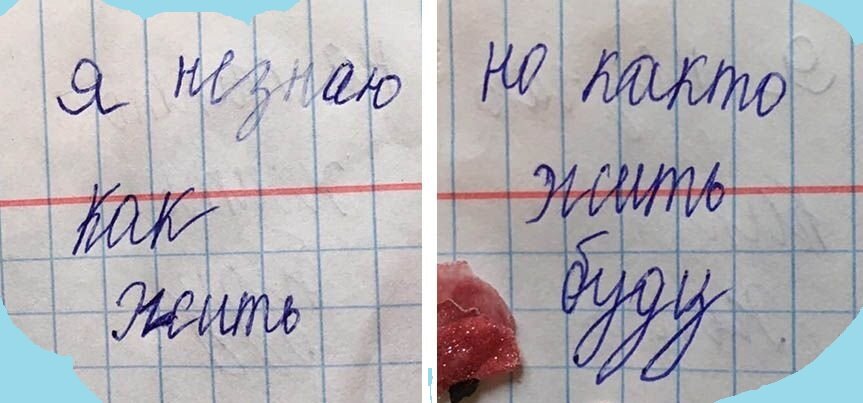 я незнаю
как
жить
но както
жить
буду